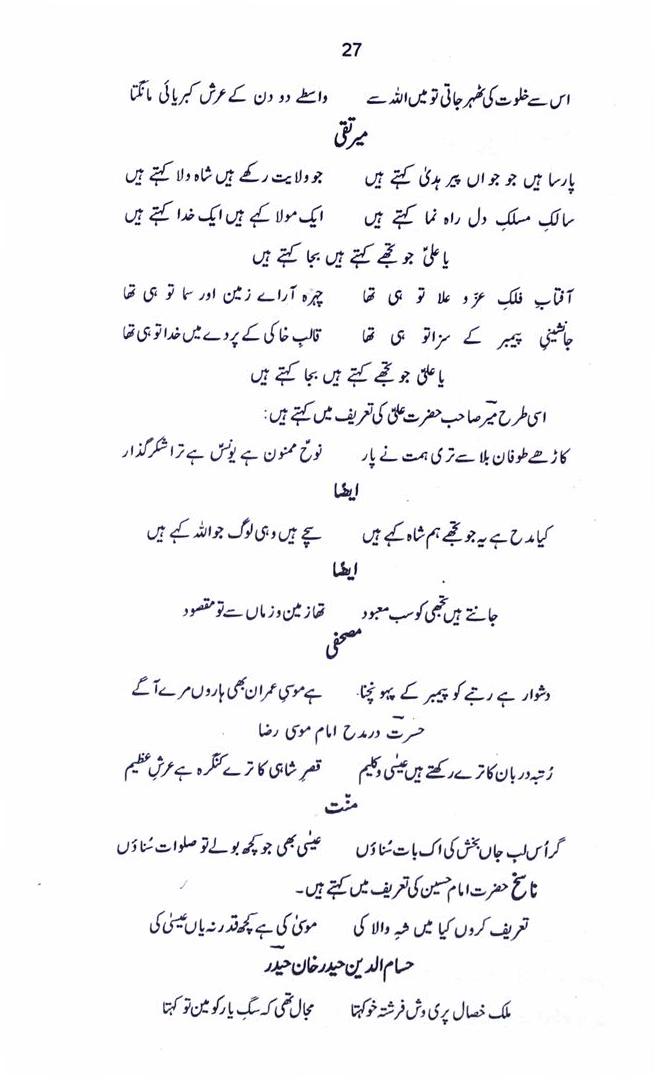 27
اس سے خلوت کی ٹھہر جاتی تو میں اللہ سے واسطے دو دن کے عرش کبریائی مانگتا
میر تقی
پارسا ہیں جو جواں پیر ہدیٰ کہتے ہیں جو ولایت رکھے ہیں شاہ ولا کہتے ہیں
سالکِ مسلکِ دل راہ نما کہتے ہیں ایک مولا کہے ہیں ایک خدا کہتے ہیں
یا علیؑ جو تجھے کہتے ہیں بجا کہتے ہیں
آفتابِ فلکِ عزّ و علا تو ہی تھا چہرہ آراے زمین اور سما تو ہی تھا
جانشینیِ پیمبر کے سزا تو ہی تھا قالبِ خاکی کے پردے میں خدا تو ہی تھا
یا علیؑ جو تجھے کہتے ہیں بجا کہتے ہیں
اسی طرح میرؔ صاحب حضرت علیؑ کی تعریف میں کہتے ہیں:
کاڑھے طوفان بلا سے تری ہمت نے پار نوحؑ ممنون ہے یونسؑ ہے ترا شکر گذار
ایضاً
کیا مدح ہے یہ جو تجھے ہم شاہ کہے ہیں سچے ہیں وہی لوگ جو اللہ کہے ہیں
ایضاً
جانتے ہیں تجھی کو سب معبود تھا زمین و زماں سے تو مقصود
مصحفی
دشوار ہے رتبے کو پیمبر کے پہونچنا ہے موسیِ عمران بھی ہاروں مرے آگے
حسرتؔ در مدح امام موسی رضا
رُتبہ دربان کا ترے رکھتے ہیں عیسٰی و کلیم قصرِ شاہی کا ترے کنگرہ ہے عرشِ عظیم
منّت
گر اُس لب جاں بخش کی اک بات سُناؤں عیسٰی بھی جو کچھ بولے تو صلوات سُناؤں
ناسخ حضرت امام حسین کی تعریف میں کہتے ہیں۔
تعریف کروں کیا میں شہِ والا کی موسیٰ کی ہے کچھ قدر نہ یاں عیسیٰ کی
حسام الدین حیدر خان حیدرؔ
ملک خصال پری وش فرشتہ خو کہتا مجال تھی کہ سگِ یار کو مین تو کہتا